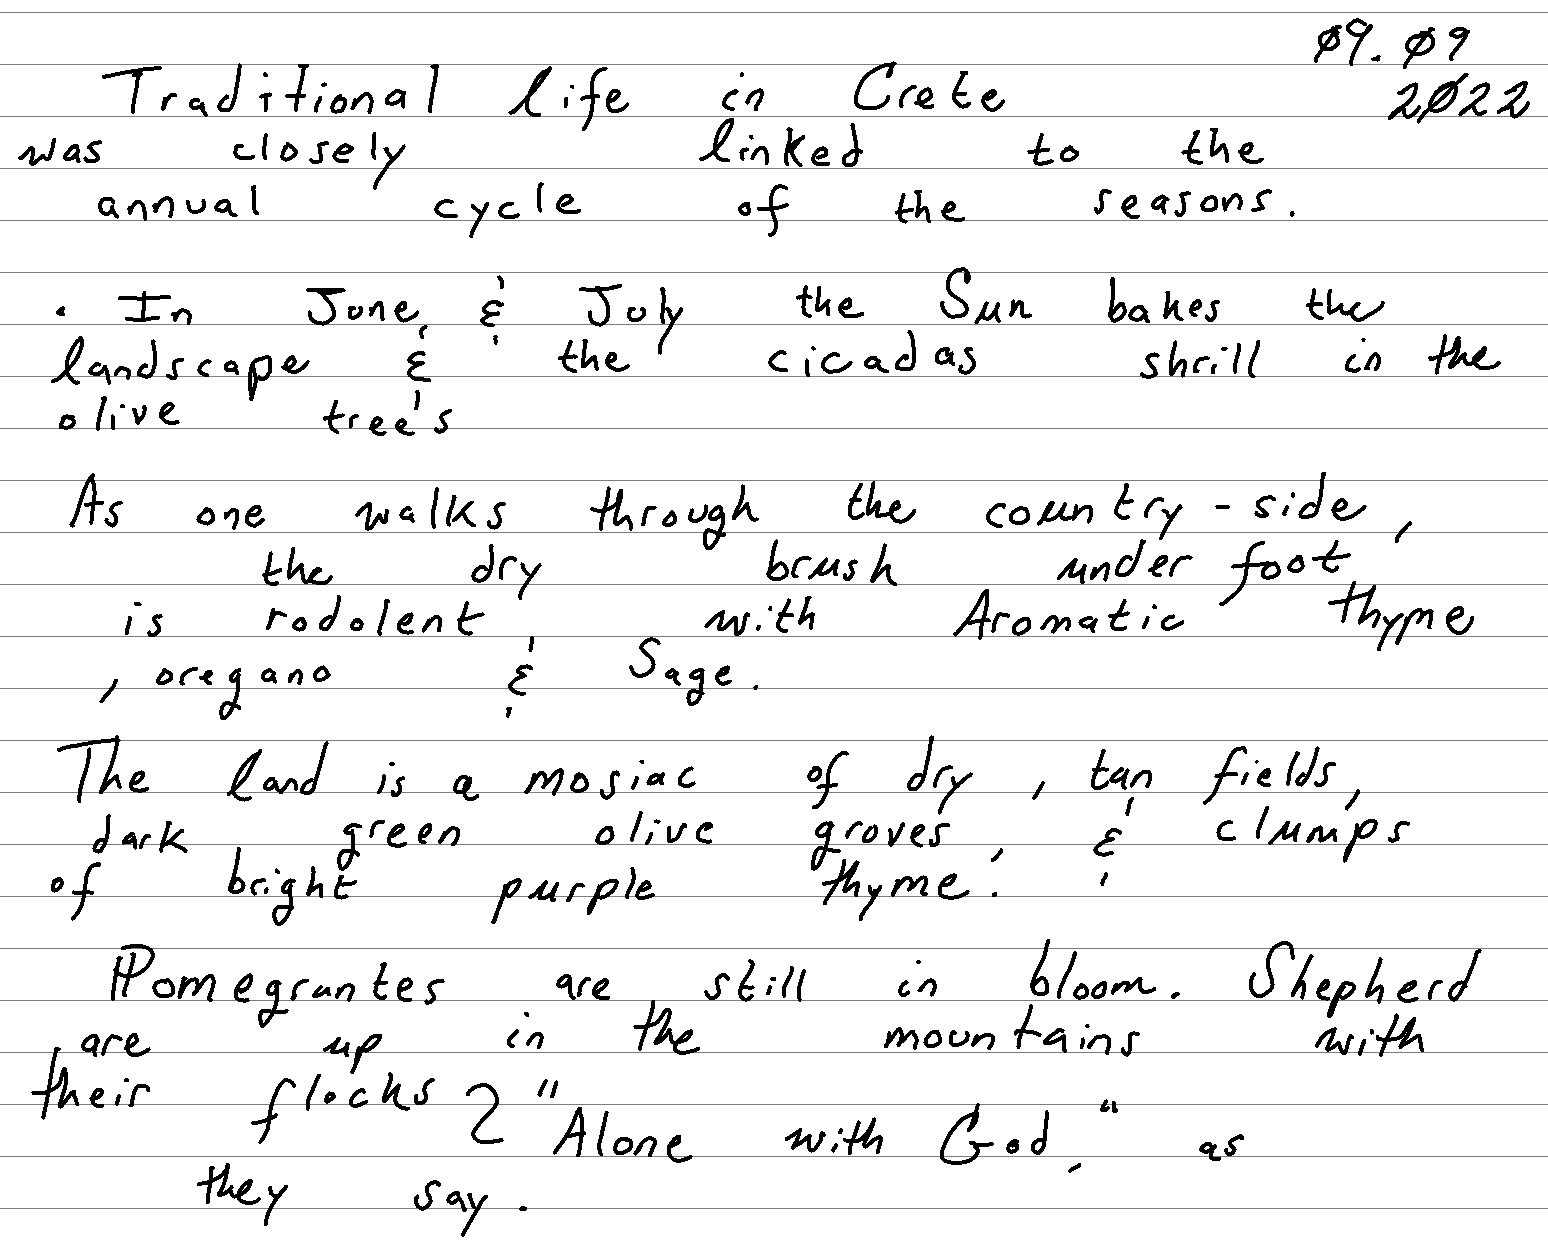 09.09
Traditional life in Crete 2022
was closely linked to the
annual cycle of the seasons.
. In June, & July the Sun bakes the
landscape & the cicadas shrill in the
olive tree's
As one walks through the country-side,
the dry brush under foot
is rodolent, with Aromatic thyme
, oregano & Sage.
The land is a mosiac of dry, tan fields,
dark green olive groves, & clumps
of bright purple thyme.
Pomegrantes are still in bloom. Shepherd
are up in the mountains with
their flocks "
Alone with God," as
they say.